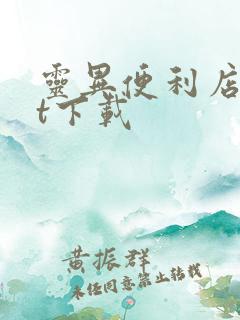 靈異便利店
t下載
黃振群
未經同意禁止轉載